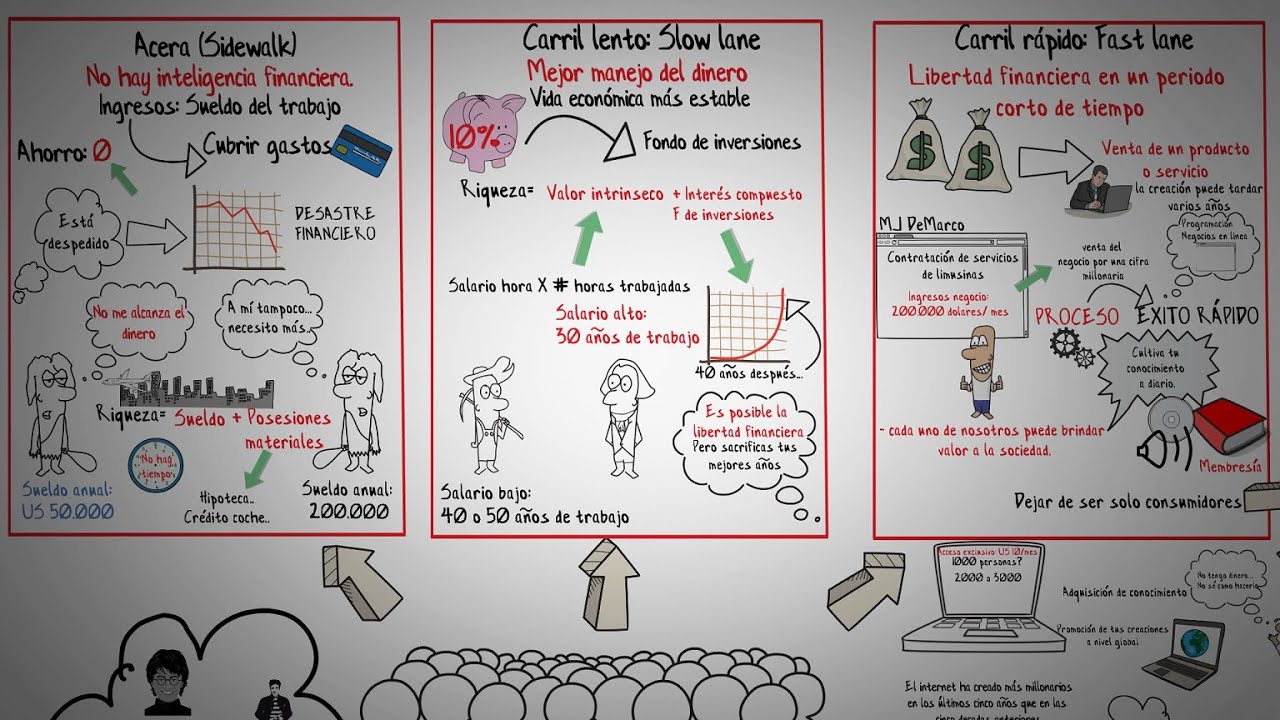 Acera (Sidewalk)
No hay inteligencia financiera.
Ingresos: Sueldo del trabajo
Ahorro: 0
Cubrir gastos
Está
despedido
DESASTRE
FINANCIERO
No me alcanza el
dinero
A mí tampoco...
necesito más..
Riqueza= Sueldo + Posesiones
materiales
"No hay
tiempo"
Sueldo anual:
US 50.000
Hipoteca..
Crédito coche..
Sueldo anual:
200.000
Carril lento: Slow lane
Mejor manejo del dinero
Vida económica más estable
10%
Fondo de inversiones
Riqueza= Valor intrinseco + Interés compuesto
F de inversiones
Salario hora X # horas trabajadas
Salario alto:
30 años de trabajo
40 años después...
Es posible la
libertad financiera
Pero sacrificas tus
mejores años
Salario bajo:
40 o 50 años de trabajo
Carril rápido: Fast lane
Libertad financiera en un periodo
corto de tiempo
$
$
Venta de un producto
o servicio
la creación puede tardar
varios años
Programación
Negocios en linea
MJ DeMarco
Contratación de servicios
de limusinas
Ingresos negocio:
200.000 dolares/ mes
venta del
negocio por una cifra
millonaria
PROCESO
ÉXITO RÁPIDO
Cultiva tu
conocimiento
a diario.
- cada uno de nosotros puede brindar
valor a la sociedad.
Membresía
Dejar de ser solo consumidores
Acceso exclusivo: US 10/mes
1000 personas?
2000 o 3000
Adquisición de conocimiento
No tengo dinero...
No sé cómo hacerlo
Promoción de tus creaciones
a nivel global
El internet ha creado más millonarios
en los últimos cinco años que en las
cinco decadas anteriores